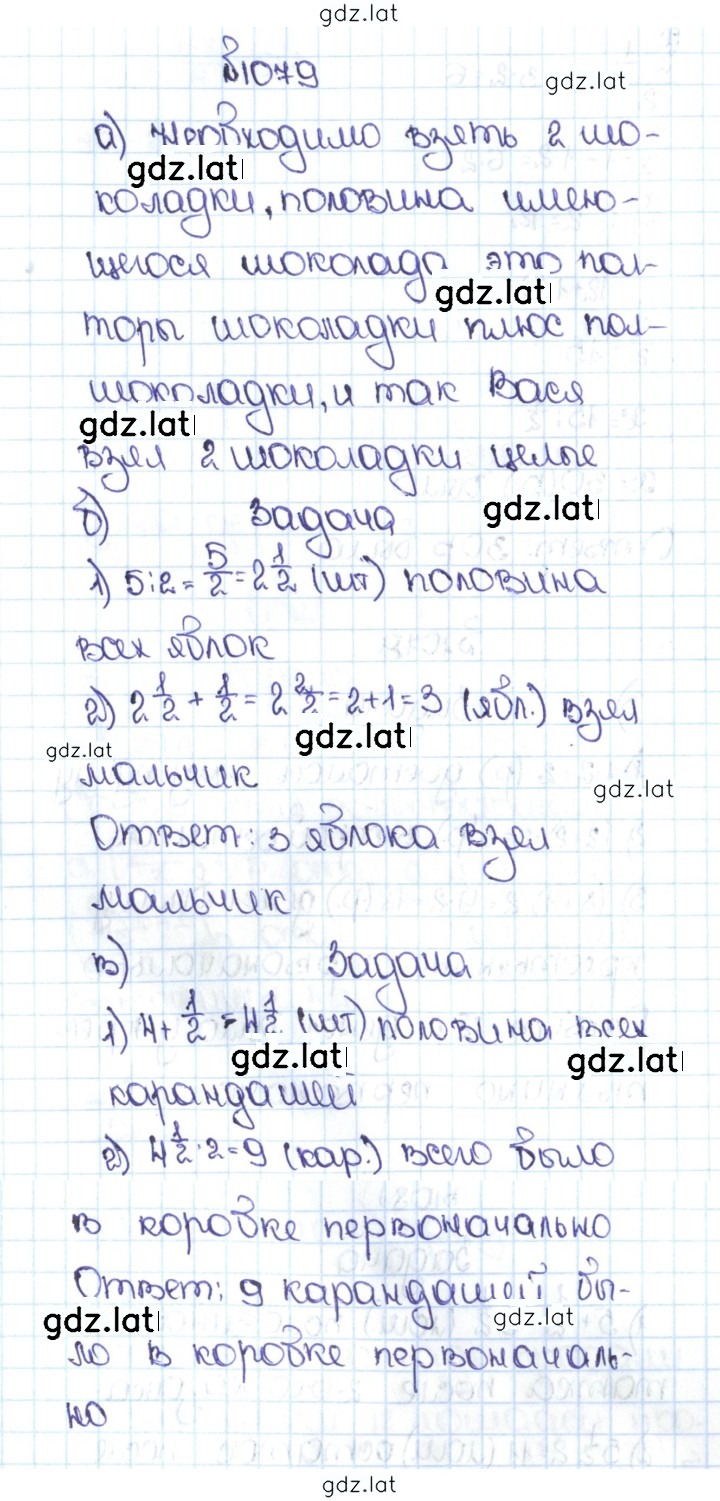 gdz.lat
№1079
gdz.lat
а) Необходимо взять 2 шо-
gdz.lat
коладки, половина имею-
щегося шоколада это пол-
gdz.lat
торы шоколадки плюс пол-
шоколадки, и так Вася
gdz.lat
взял 2 шоколадки целые
б) Задача
gdz.lat
1) 5:2 = 5/2 = 2 1/2 (шт) половина
всех яблок
2) 2 1/2 + 1/2 = 2 2/2 = 2+1=3 (ябл.) взял
gdz.lat
gdz.lat
мальчик
gdz.lat
Ответ: 3 яблока взял
мальчик
в) Задача
1) 4 + 1/2 = 4 1/2 (шт) половина всех
gdz.lat
gdz.lat
карандашей
2) 4 1/2 · 2 = 9 (кар.) всего было
в коробке первоначально
Ответ: 9 карандашей бы-
gdz.lat
gdz.lat
ло в коробке первоначаль-
но
gdz.lat